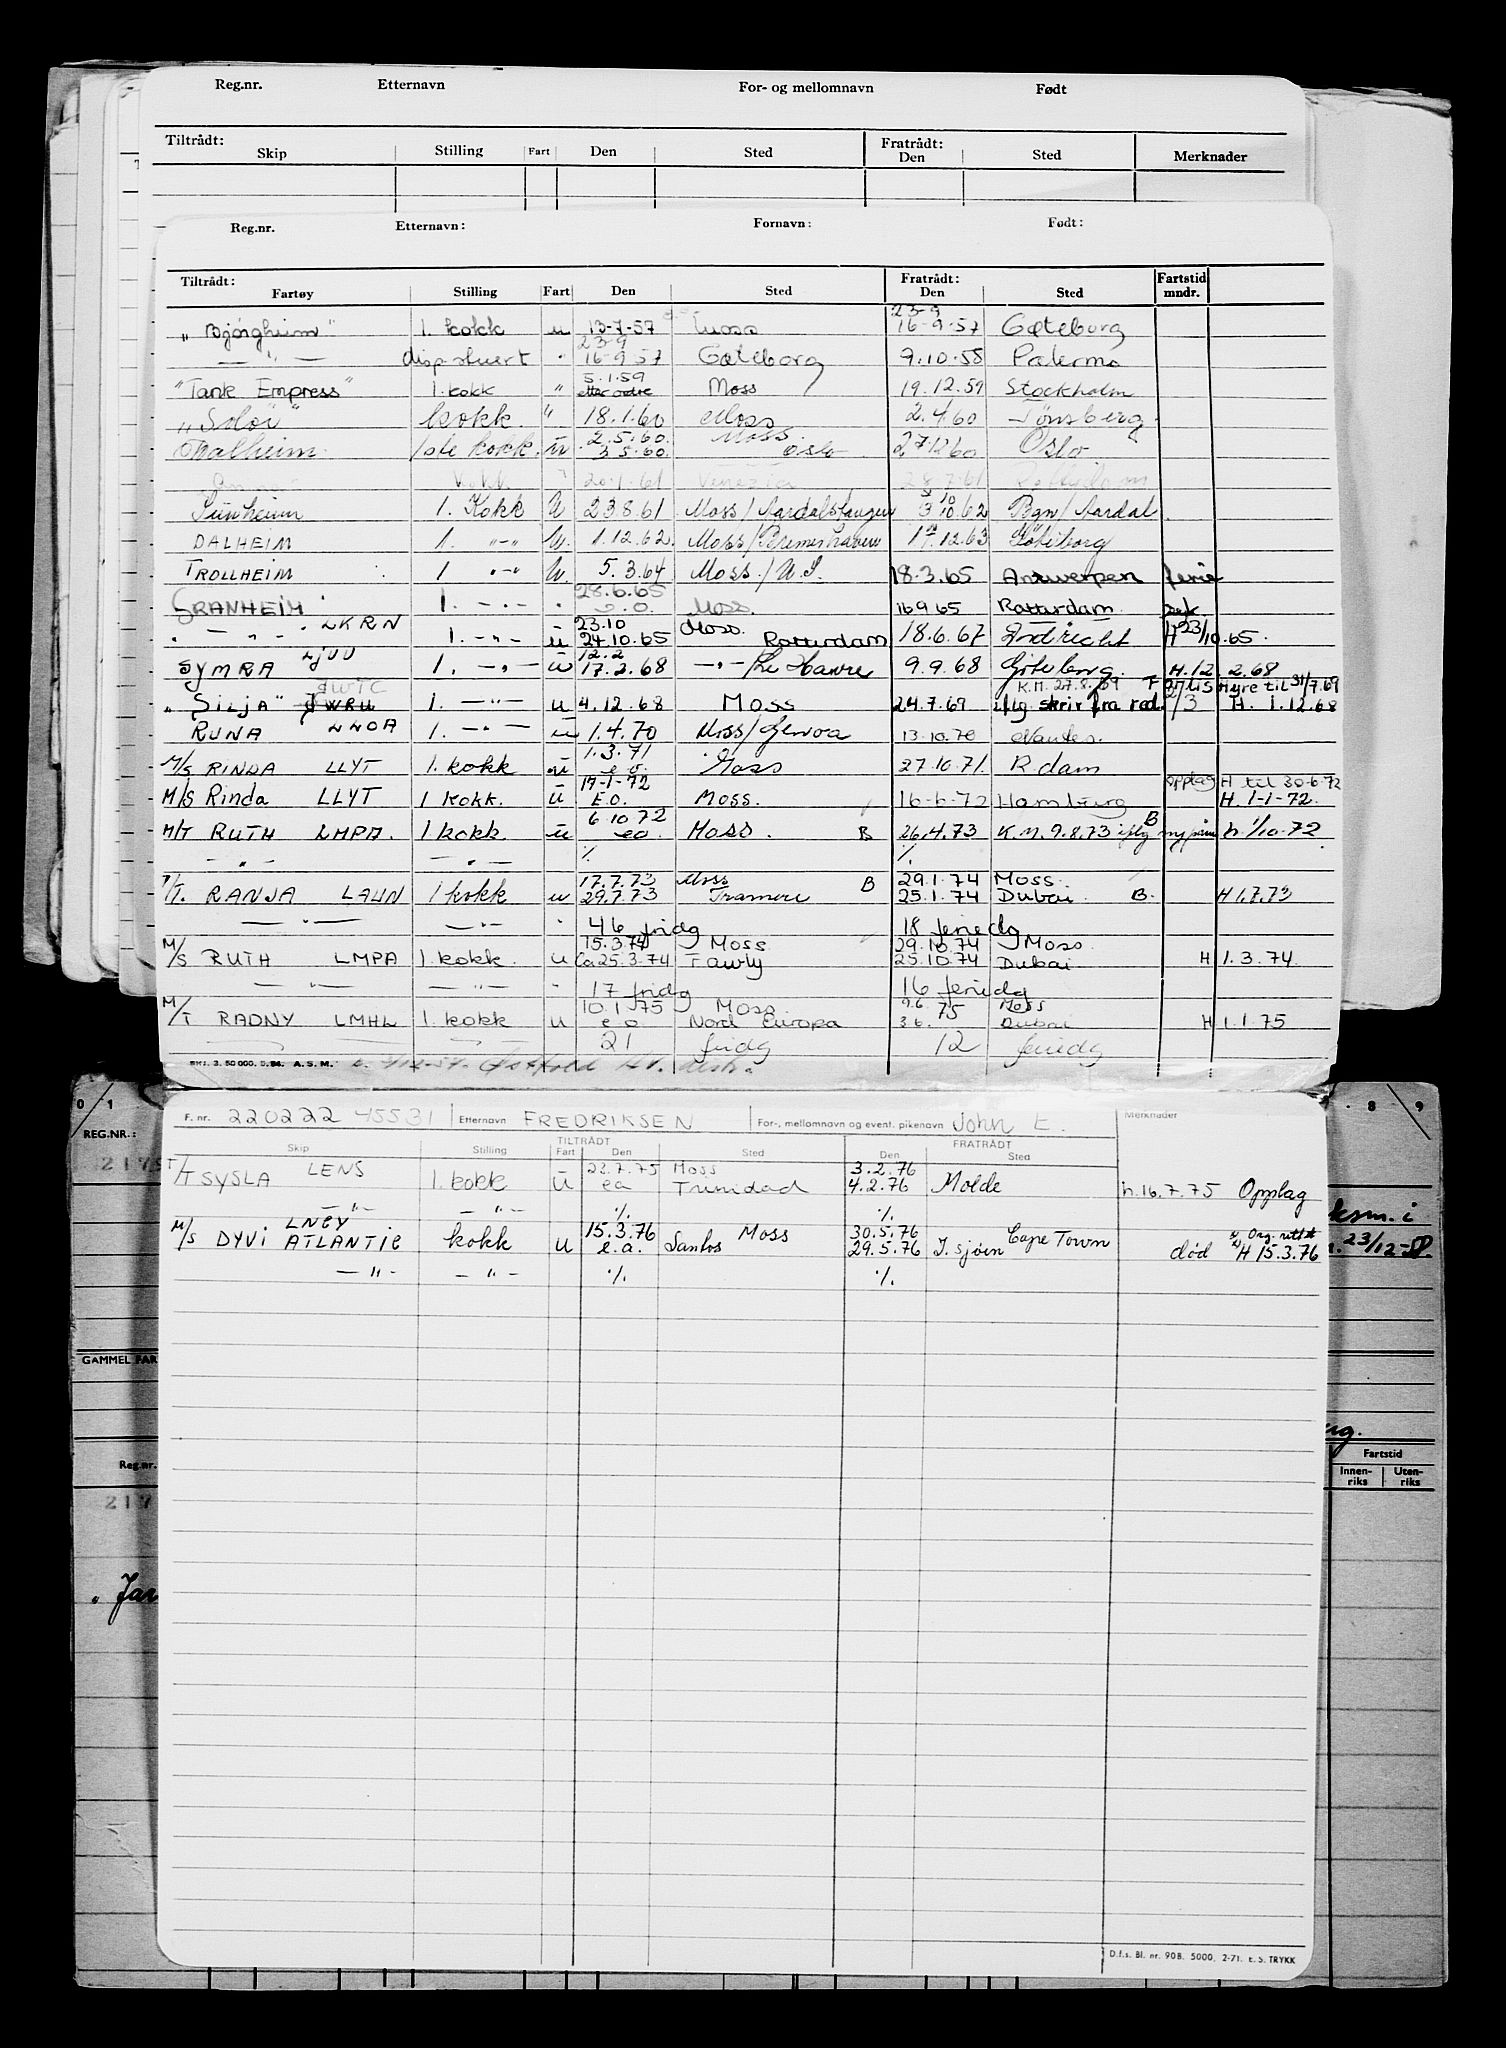 Reg.nr. Etternavn For- og mellomnavn Født
Tiltrådt: Fratrådt:
Skip Stilling Fart Den Sted Den Sted Merknader
Reg.nr. Etternavn: Fornavn: Født:
Tiltrådt: Fratrådt: Fartstid
Fartøy Stilling Fart Den Sted Den Sted mndr.
23-9
"Bjørgheim" 1. kokk u 13-7-57 Moss 16-9-57 Gøteborg
23-9
— " — disp. stuert " 16-9 57 Gøteborg 9.10.58 Palermo
5.1.59
"Tank Empress" 1. kokk " etter ordre Moss 19.12.59 Stockholm
"Soløi" kokk " 18.1.60 Moss 2.4.60 Tønsberg
2.5.60. Moss
Dalheim 1ste kokk. u 3 5.60. Oslo 27 12 60 Oslo
kokk 20.1.61 Venezia 28.7.61 Rotterdam
Sunheim 1. Kokk U 23.8.61 Moss/Aardalstangen 3/10 10.62 Bgn/Aardal
DALHEIM 1. "-" U. 1.12.62 Moss/Bremerhaven 17.12.63 Göteborg
TROLLHEIM 1 "-" U. 5.3.64 Moss./U.S. 18.3.65 Antwerpen ferie
28.6.65
GRANHEIM 1. - " - " e.o. Moss. 16 9 65 Rotterdam syk.
LKRN 23.10 Moss.
" - " - 1. - " - u 24.10.65 Rotterdam 18.6.67 Zndrecht H 23/10.65.
LJUU 12.2
SYMRA 1. - " - u 17.2.68 - " - /Le Havre 9.9.68 Göteborg. H.12 2.68
JWTC K.M. 27.8.69 F Hyre til 31/7.69
"SILJA" JWRU 1. - " - u 4.12.68 Moss 24.7.69 iflg skriv fra red. /3 H. 1.12.68
RUNA LLOA 1. - " - u 1.4.70 Moss/Genova 13.10.70 Nantes.
1.3.71
M/S RINDA LLYT 1. kokk u e o. Moss 27.10.71. R.dam
17-1-72 opplag H til 30-6-72
M/S Rinda LLYT 1 kokk. u E.O. Moss. 16-6-72 Hamburg H. 1-1-72.
6.10 72 B
M/T RUTH LMPA. 1 kokk. u eo Moss. B 26.4.73 K.M. 9.8.73 iflg h. 1/10-72
- " - - " - ./. ./.
17.7.73 Moss 29.1.74 Moss.
T/T. RANJA LAUN 1 kokk u 29.7.73 Tranmere B 25.1.74 Dubai B. H 1.7.73
— " — — " — " 46 fridg 18 feriedg
15.3.74 Moss 29.10.74 Moss.
M/S RUTH LMPA 1. kokk. u Ca 25.3.74 Fawly 25.10.74 Dubai H 1.3.74
— " — - " - " 17 fridg 16 feriedg
10.1.75 Moss 9.6. 75 Moss
M/T RADNY LMHL 1. kokk u e o Nord Europa 3 6. Dubai H 1.1.75
21 fridg 12 feriedg
BMI. 3. 50 000. 5.54. A.S.M.
F. nr. 220222 45531 Etternavn FREDRIKSEN For-, mellomnavn og event. pikenavn John E. Merknader
TILTRÅDT FRATRÅDT
Skip Stilling Fart Den Sted Den Sted
22.7.75 Moss 3.2.76
T/T SYSLA LENS 1. kokk u ea Trinidad 4.2.76 Molde h. 16.7.75 Opplag
- " - - " - ./. ./.
LNEY 15.3.76 Moss 30.5.76 Cape Town
M/S DYVI ATLANTIC kokk u e.a. Santos 29.5.76 I. sjøen død H 15.3.76
— " — - " - ./. ./.
D.f.s. Bl. nr. 90B. 5000, 2-71. E.S. TRYKK
0 1
REG.NR.:
GAMMEL FAR
Reg.nr.
8 9
23/12-58.
Fartstid
Innen-riks Uten-riks